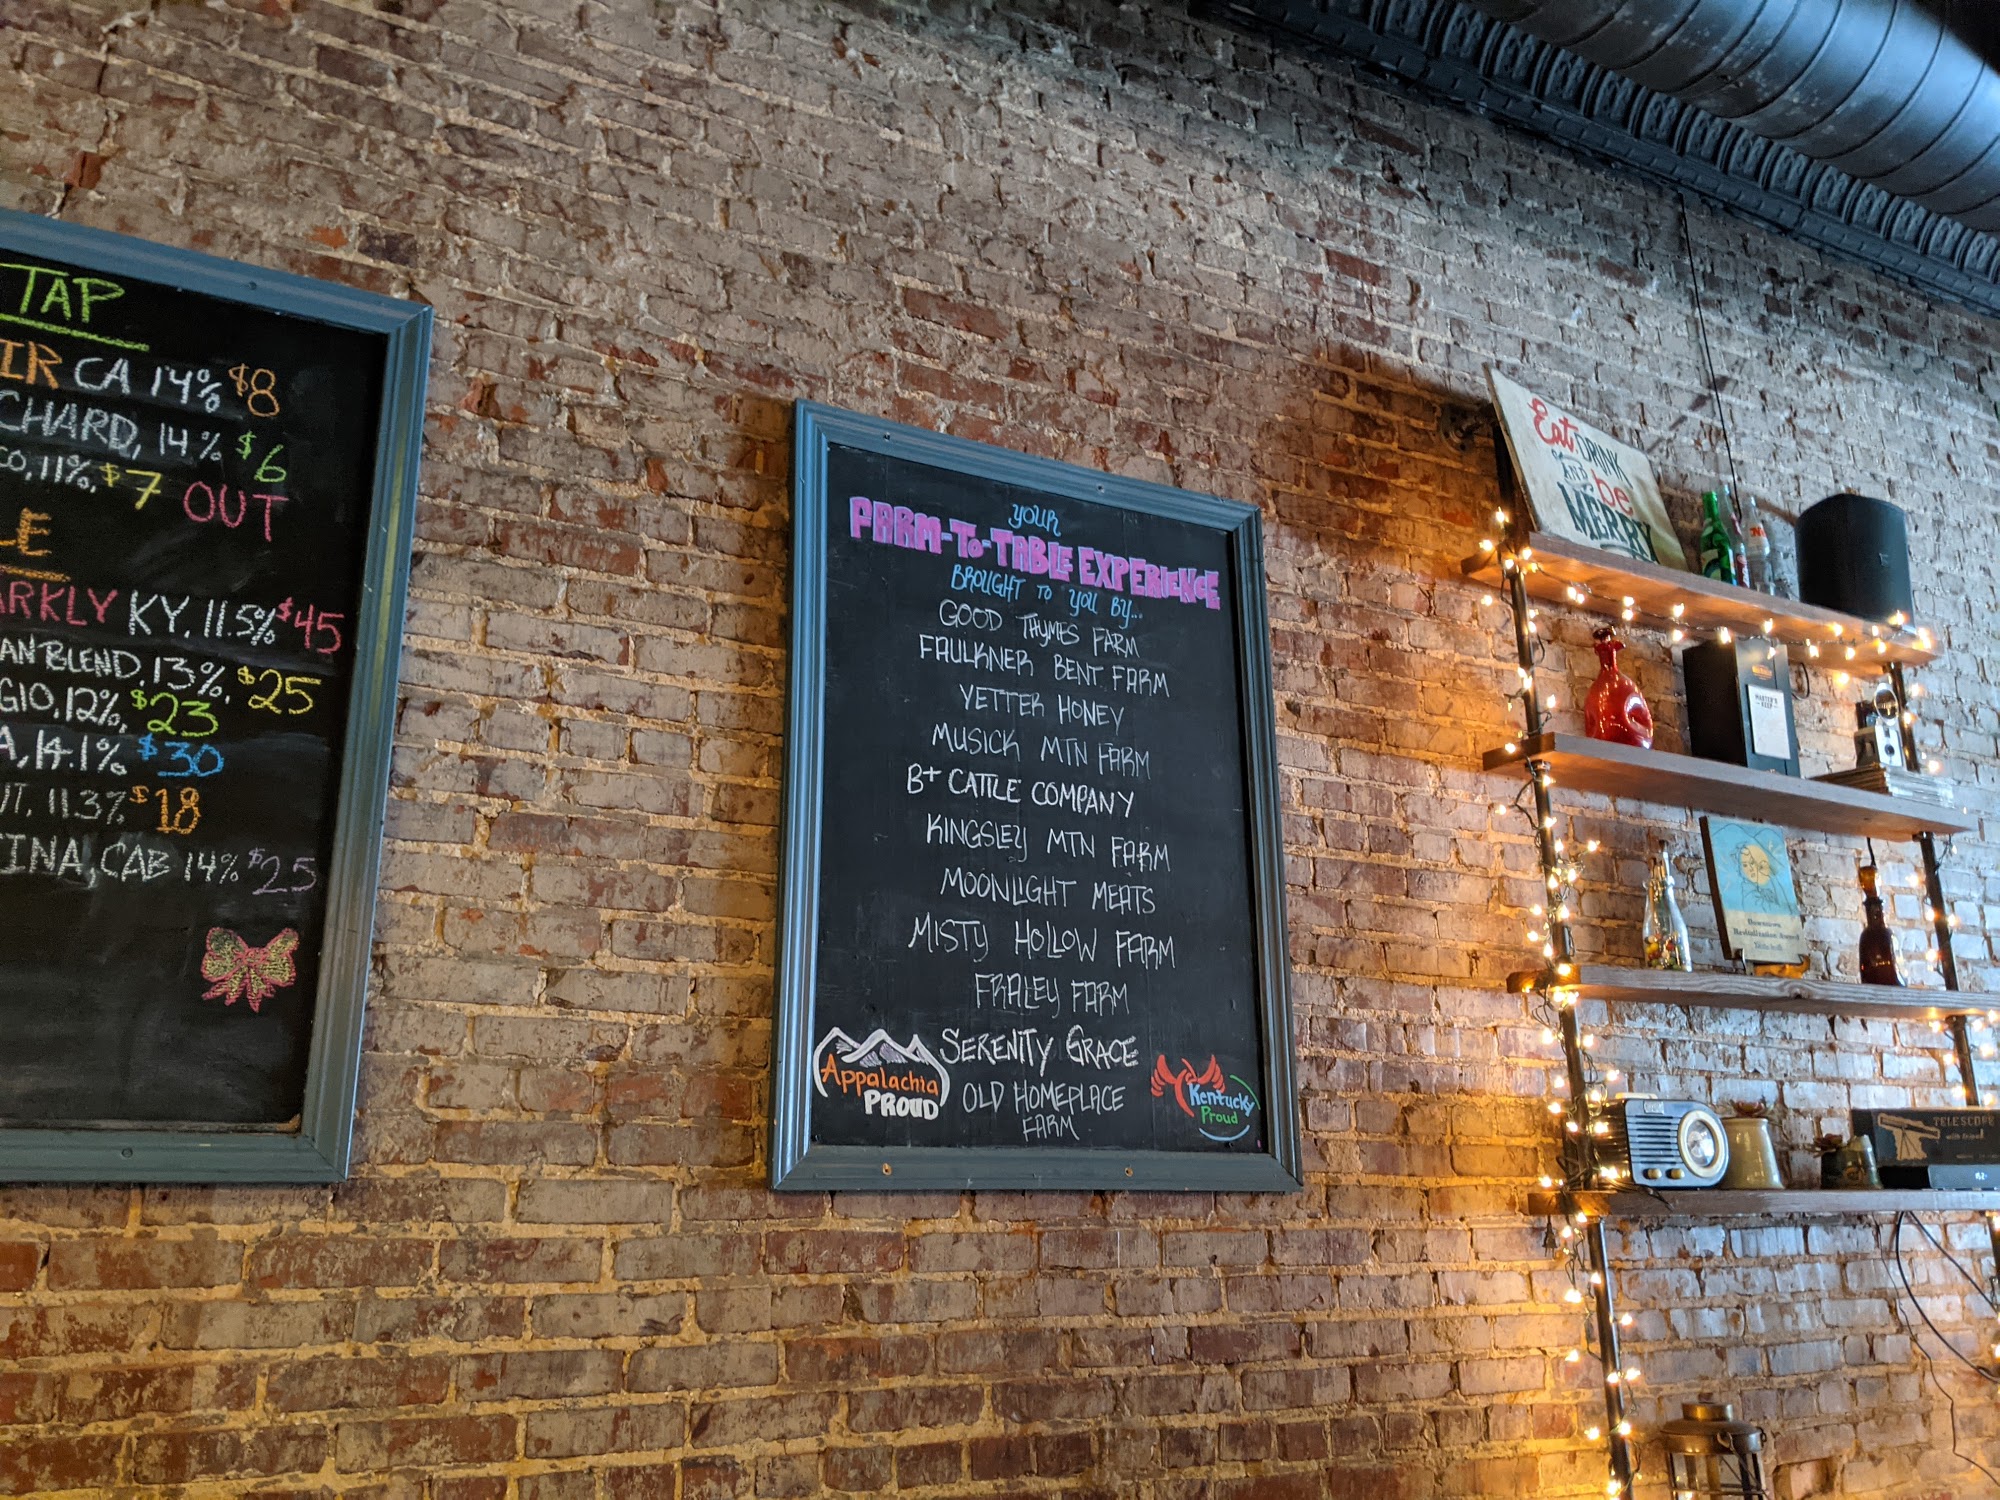 TAP
IR CA 14% $8
CHARD, 14% $6
CO, 11%, $7 OUT
LE
ARKLY KY, 11.5% $45
AN BLEND, 13%, $25
GIO, 12%, $23
A, 14.1% $30
UT, 11.3% $18
TINA, CAB 14% $25
YOUR
FARM-TO-TABLE EXPERIENCE
BROUGHT TO YOU BY...
GOOD THYMES FARM
FAULKNER BENT FARM
YETTER HONEY
MUSICK MTN FARM
B+ CATTLE COMPANY
KINGSLEY MTN FARM
MOONLIGHT MEATS
MISTY HOLLOW FARM
FRALEY FARM
SERENITY GRACE
OLD HOMEPLACE
FARM
Appalachia
PROUD
Kentucky
Proud
Eat, DRINK
AND be
MERRY
MAKER'S
KEEP
TELESCOPE